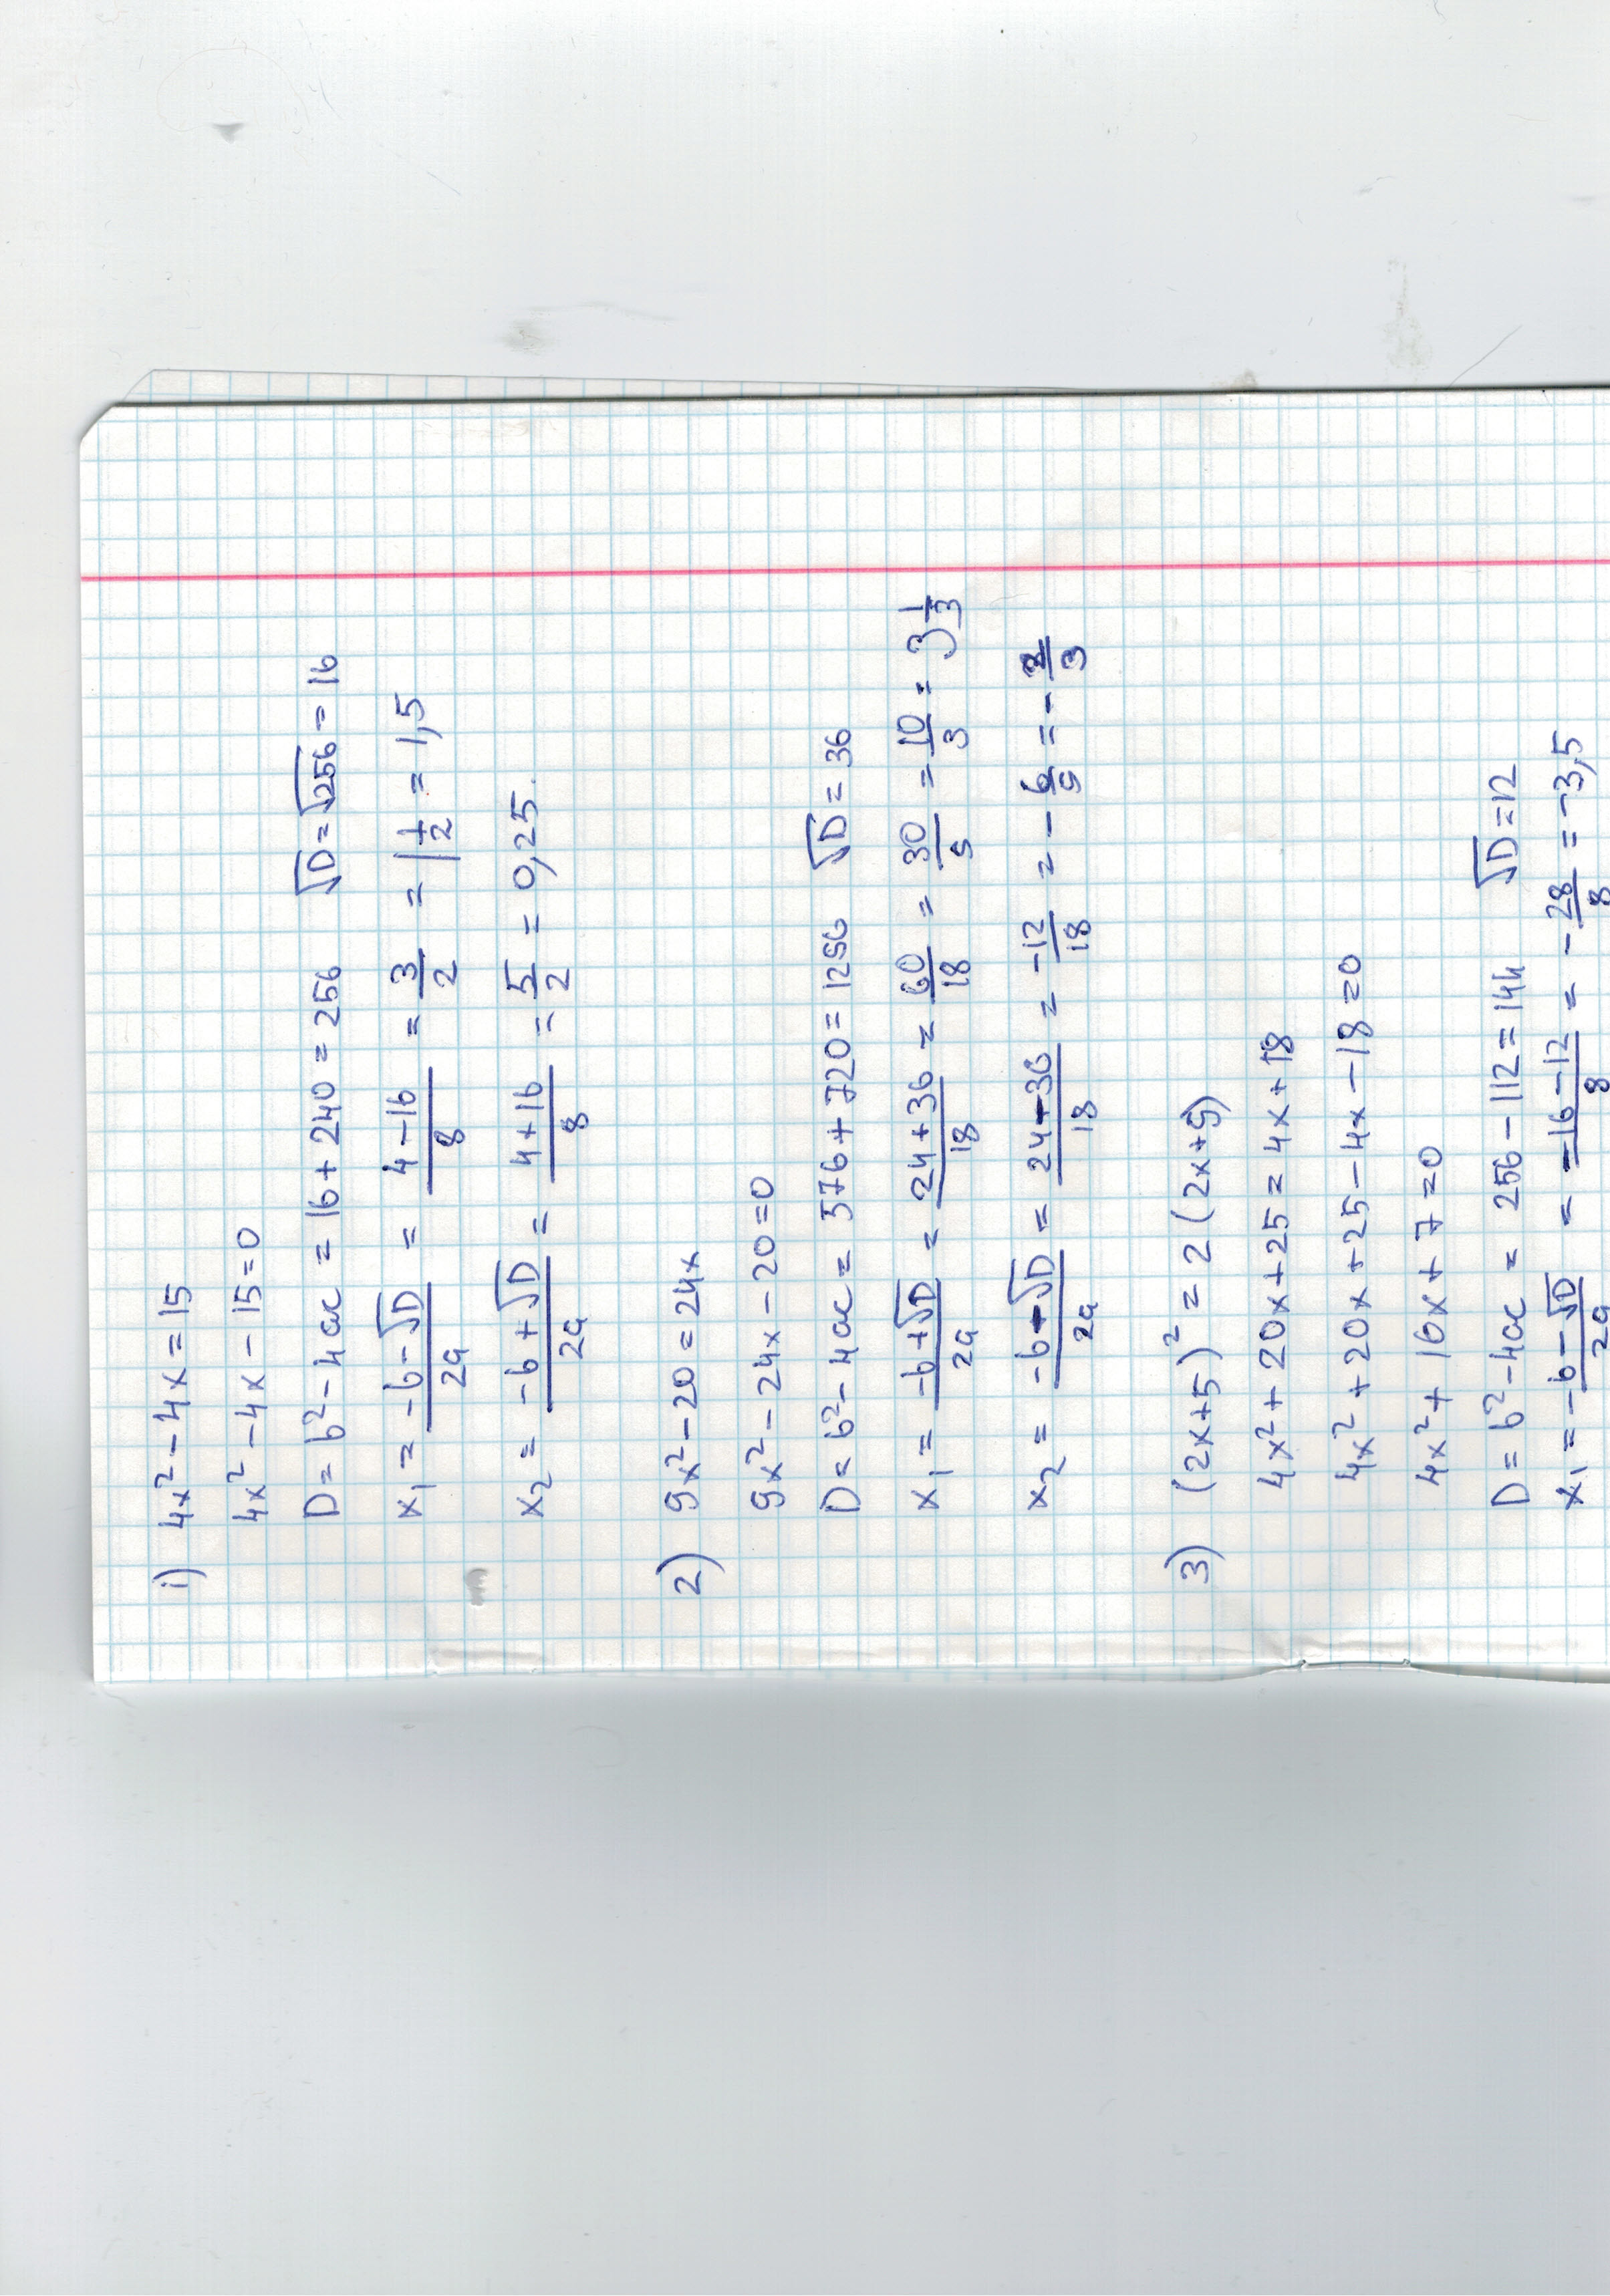 1) 4x² - 4x = 15
4x² - 4x - 15 = 0
D = b² - 4ac = 16 + 240 = 256 √D = √256 = 16
x₁ = (-b - √D)/2a = (4 - 16)/8 = 3/2 = 1 1/2 = 1,5
x₂ = (-b + √D)/2a = (4 + 16)/8 = 5/2 = 0,25.
2) 9x² - 20 = 24x
9x² - 24x - 20 = 0
D = b² - 4ac = 576 + 720 = 1256 √D = 36
x₁ = (-b + √D)/2a = (24 + 36)/18 = 60/18 = 30/9 = 10/3 = 3 1/3
x₂ = (-b - √D)/2a = (24 - 36)/18 = -12/18 = -6/9 = -2/3
3) (2x+5)² = 2(2x+9)
4x² + 20x + 25 = 4x + 18
4x² + 20x + 25 - 4x - 18 = 0
4x² + 16x + 7 = 0
D = b² - 4ac = 256 - 112 = 144 √D = 12
x₁ = (-b - √D)/2a = (-16 - 12)/8 = -28/8 = -3,5